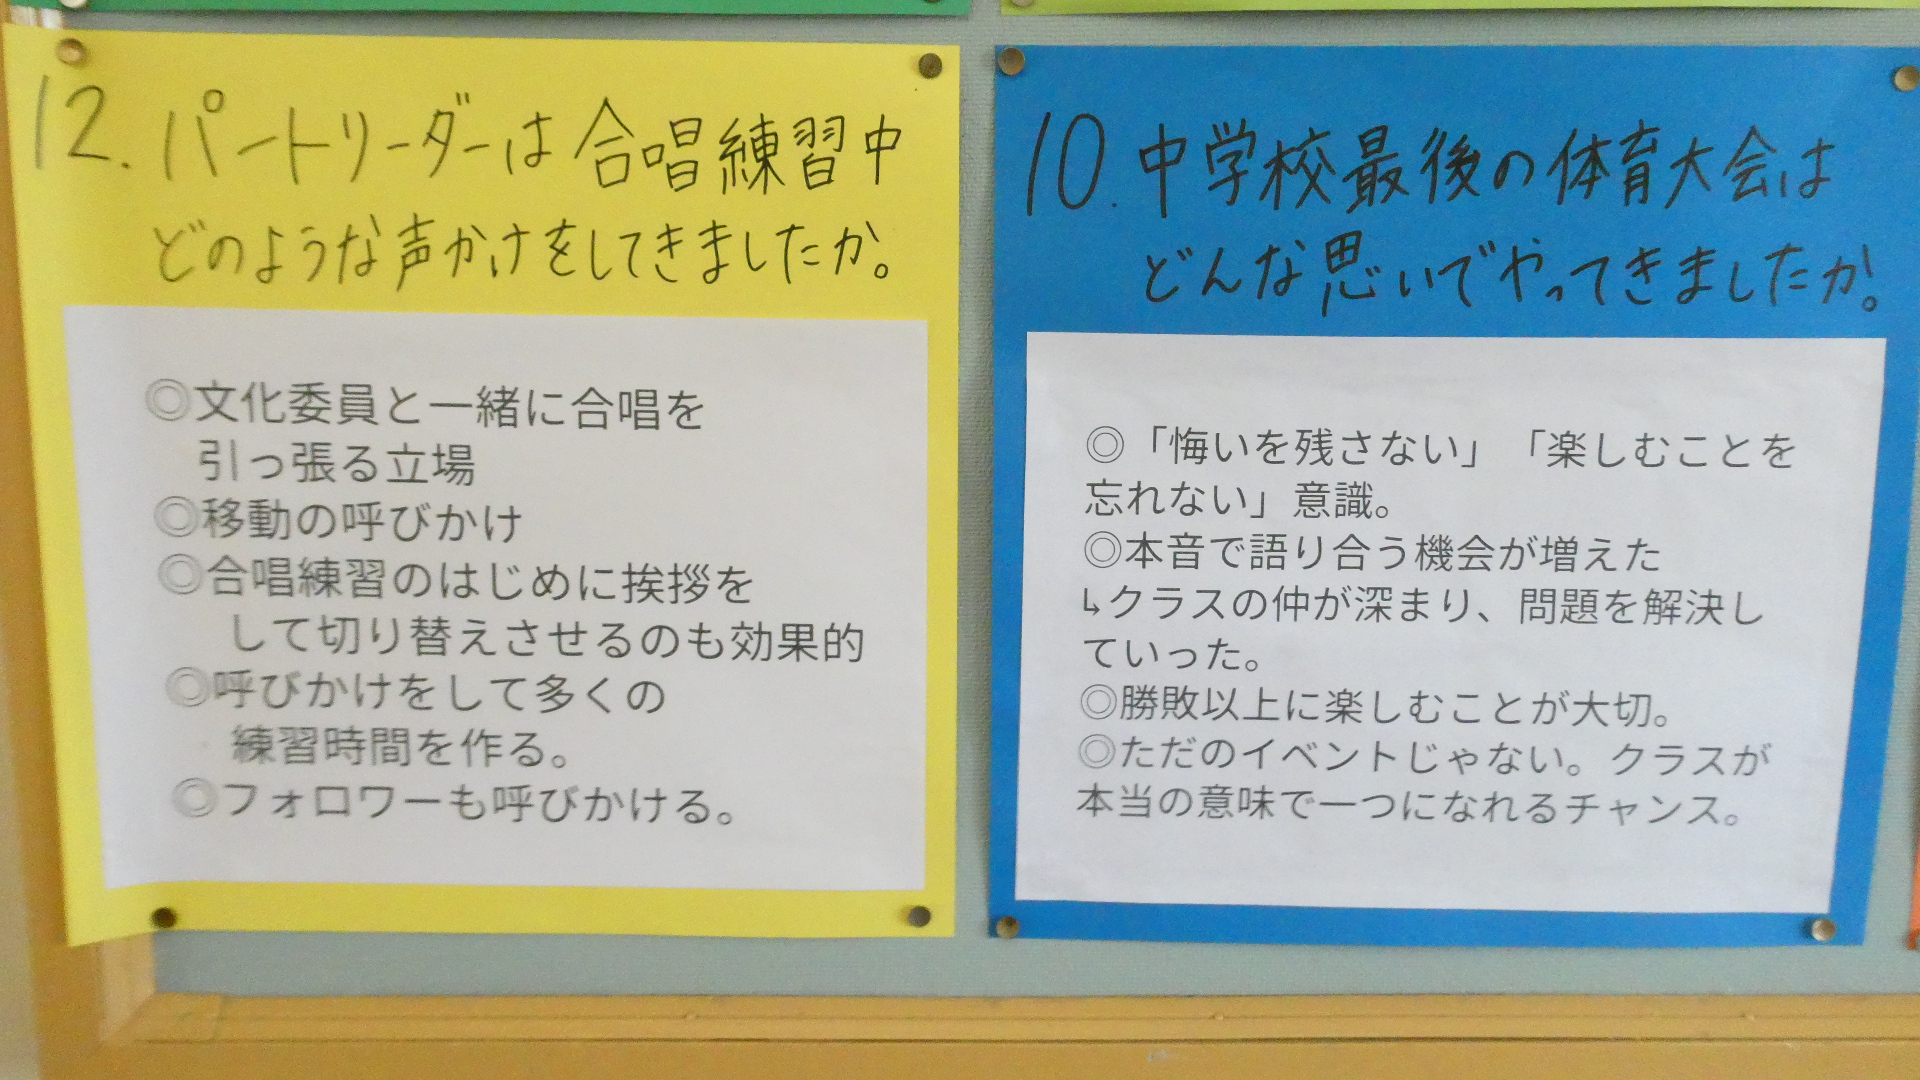 12. パートリーダーは合唱練習中
どのような声かけをしてきましたか。
◎文化委員と一緒に合唱を
引っ張る立場
◎移動の呼びかけ
◎合唱練習のはじめに挨拶を
して切り替えさせるのも効果的
◎呼びかけをして多くの
練習時間を作る。
◎フォロワーも呼びかける。
10. 中学校最後の体育大会は
どんな思いでやってきましたか。
◎「悔いを残さない」「楽しむことを
忘れない」意識。
◎本音で語り合う機会が増えた
↳クラスの仲が深まり、問題を解決し
ていった。
◎勝敗以上に楽しむことが大切。
◎ただのイベントじゃない。クラスが
本当の意味で一つになれるチャンス。